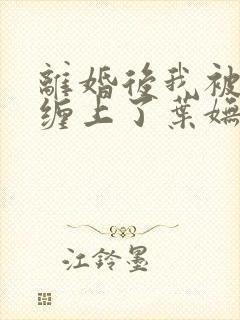 離婚後我被
缠上了葉嫵
江鈴墨